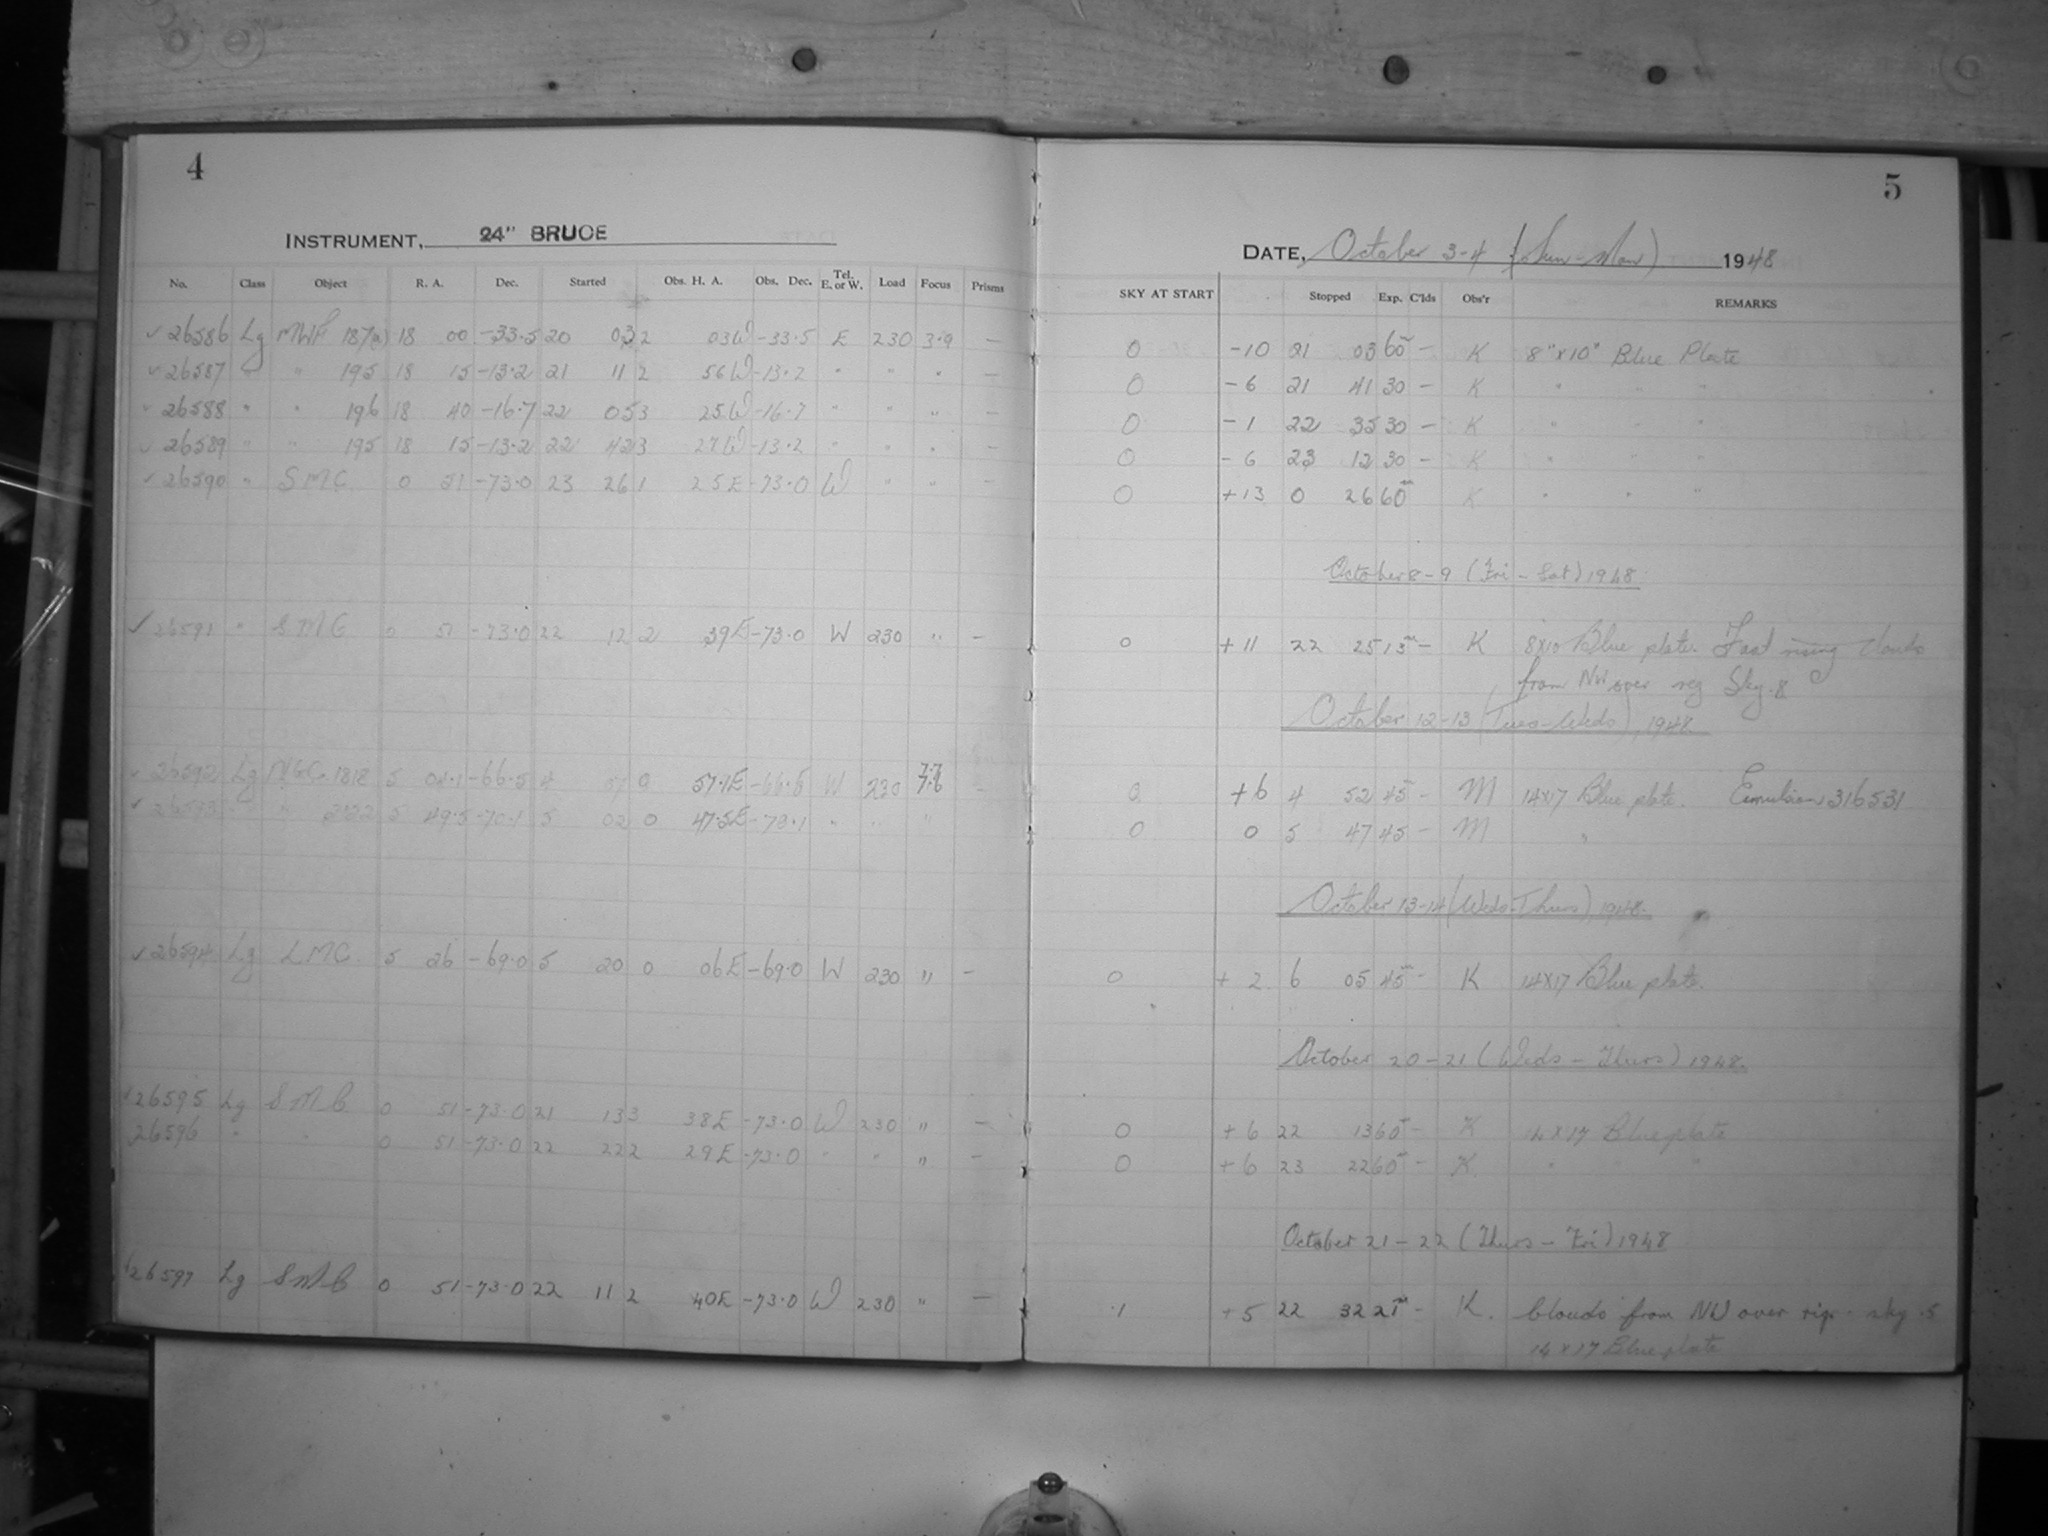 4
INSTRUMENT, 24" BRUCE
No. Class Object R. A. Dec. Started Obs. H. A. Obs. Dec. Tel. E. or W. Load Focus Prisms
✓ 26586 Lg MWF 187(a) 18 00 -33.5 20 03 2 03W -33.5 E 230 3.9 —
✓ 26587 " " 195 18 15 -13.2 21 11 2 56W -13.2 " " " —
✓ 26588 " " 196 18 40 -16.7 22 05 3 25W -16.7 " " " —
✓ 26589 " " 195 18 15 -13.2 22 42 3 27W -13.2 " " " —
✓ 26590 " SMC 0 51 -73.0 23 26 1 25E -73.0 W " " —
✓ 26591 " SMC 0 51 -73.0 22 12 2 39E -73.0 W 230 " —
✓ 26592 Lg NGC 1818 5 04.1 -66.5 4 0 57.1E -66.5 W 230 7.7 7.6 —
✓ 26593 " " 5 49.5 -70.1 5 02 0 47.5E -70.1 " " "
✓ 26594 Lg LMC 5 26 -69.0 5 20 0 06E -69.0 W 230 " —
✓ 26595 Lg SMC 0 51 -73.0 21 13 3 38E -73.0 W 230 " —
26596 " " 0 51 -73.0 22 22 2 29E -73.0 " " " —
26597 Lg SMC 0 51 -73.0 22 11 2 40E -73.0 W 230 " —
5
DATE, October 3-4 (Sun-Mon) 1948
SKY AT START Stopped Exp. C'lds Obs'r REMARKS
0 -10 21 03 60m — K 8"x10" Blue Plate
0 -6 21 41 30 — K " " "
0 -1 22 35 30 — K " " "
0 -6 23 12 30 — K " " "
0 +13 0 26 60m K " " "
October 8-9 (Fri-Sat) 1948
0 +11 22 25 13m — K 8x10 Blue plate. Fast rising clouds
from NW over reg Sky .8
October 12-13 (Tues-Weds), 1948
0 +6 4 52 45 — M 14x17 Blue plate. Emulsion 316531
0 0 5 47 45 — M "
October 13-14 (Weds-Thurs) 1948
0 +2 6 05 45m — K 14x17 Blue plate.
October 20-21 (Weds-Thurs) 1948.
0 +6 22 13 60m — K 14x17 Blue plate
0 +6 23 22 60m — K " " "
October 21-22 (Thurs-Fri) 1948
.1 +5 22 32 21m — K. Clouds from NW over reg. sky .5
14x17 Blue plate